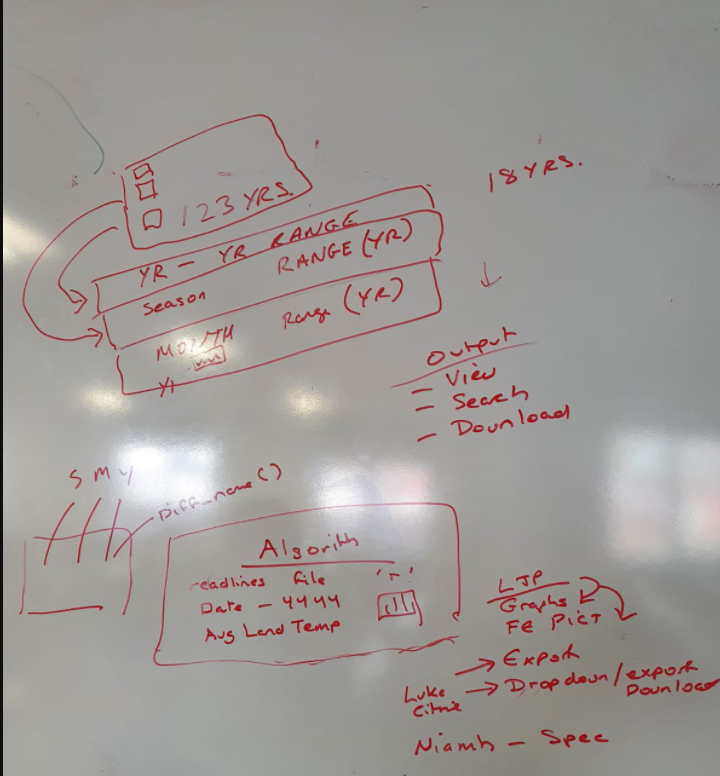 123 YRS.
18 YRS.
YR - YR RANGE
Season RANGE (YR)
MONTH Range (YR)
Output
- View
- Search
- Download
S M Y
Diff_name()
Algorith
readlines file 'r'
Date - YYYY
Avg Land Temp
LJP
Graphs
FE PICT
→ Export
Luke → Dropdown/export
Citrie Download
Niamh - Spec